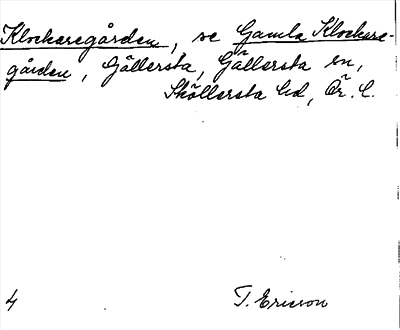 Klockaregården, se Gamla Klockare-
gården, Gällersta, Gällersta sn,
Sköllersta hd, Ör. l.
4 T. Ericson